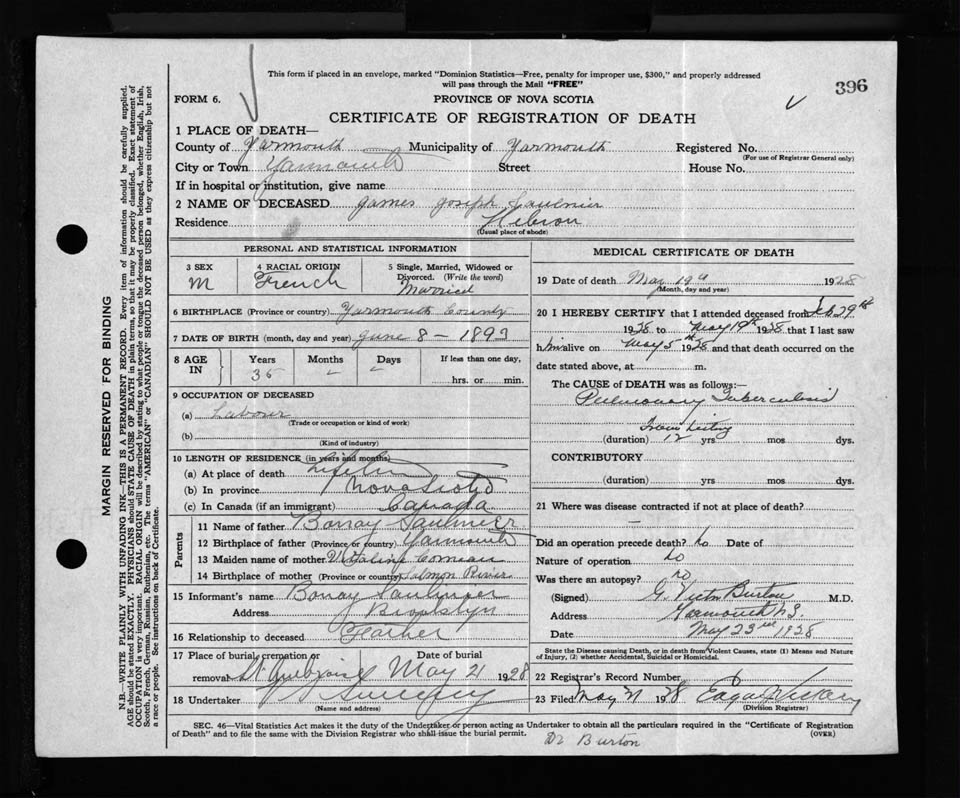 This form if placed in an envelope, marked "Dominion Statistics—Free, penalty for improper use, $300," and properly addressed
will pass through the Mail "FREE"
396
FORM 6.
PROVINCE OF NOVA SCOTIA
CERTIFICATE OF REGISTRATION OF DEATH
1 PLACE OF DEATH—
County of Yarmouth Municipality of Yarmouth Registered No.
(For use of Registrar General only)
City or Town Yarmouth Street House No.
If in hospital or institution, give name
2 NAME OF DECEASED James Joseph Saulnier
Residence Hebron
(Usual place of abode)
PERSONAL AND STATISTICAL INFORMATION
3 SEX 4 RACIAL ORIGIN 5 Single, Married, Widowed or
Divorced. (Write the word)
M French Married
6 BIRTHPLACE (Province or country) Yarmouth County
7 DATE OF BIRTH (month, day and year) June 8 – 1893
8 AGE IN Years Months Days If less than one day,
35 – – hrs. or min.
9 OCCUPATION OF DECEASED
(a) Labour
(Trade or occupation or kind of work)
(b)
(Kind of industry)
10 LENGTH OF RESIDENCE (in years and months)
(a) At place of death
(b) In province Nova Scotia
(c) In Canada (if an immigrant) Canada
Parents
11 Name of father Bonay Saulnier
12 Birthplace of father (Province or country) Yarmouth
13 Maiden name of mother Vitaline Comeau
14 Birthplace of mother (Province or country) Salmon River
15 Informant's name Bonay Saulnier
Address Brooklyn
16 Relationship to deceased Father
17 Place of burial, cremation or Date of burial
removal St May 21 1928
18 Undertaker Sweeney
(Name and address)
MEDICAL CERTIFICATE OF DEATH
19 Date of death May 19 1928
(Month, day and year)
20 I HEREBY CERTIFY that I attended deceased from Feb 29th
1928 to May 19th 1928 that I last saw
him alive on May 5th 1928 and that death occurred on the
date stated above, at m.
The CAUSE of DEATH was as follows:—
Pulmonary Tuberculosis
(duration) 12 yrs mos dys.
CONTRIBUTORY
(duration) yrs. mos. dys.
21 Where was disease contracted if not at place of death?
–
Did an operation precede death? No Date of
Nature of operation No
Was there an autopsy? No
(Signed) G. Victor Burton M.D.
Address Yarmouth N.S.
Date May 23rd 1928
State the Disease causing Death, or in death from Violent Causes, state (1) Means and Nature
of Injury, (2) whether Accidental, Suicidal or Homicidal.
22 Registrar's Record Number
23 Filed May 21 1928
(Division Registrar)
SEC. 46—Vital Statistics Act makes it the duty of the Undertaker or person acting as Undertaker to obtain all the particulars required in the "Certificate of Registration
of Death" and to file the same with the Division Registrar who shall issue the burial permit. (OVER)
Dr Burton
MARGIN RESERVED FOR BINDING
N.B.—WRITE PLAINLY WITH UNFADING INK—THIS IS A PERMANENT RECORD. Every item of information should be carefully supplied.
AGE should be stated EXACTLY. PHYSICIANS should STATE CAUSE OF DEATH in plain terms, so that it may be properly classified. Exact statement of
OCCUPATION is very important. RACIAL ORIGIN will be described by stating to what people or tongue the deceased person belonged, whether English, Irish,
Scotch, French, German, Russian, Ruthenian, etc. The terms "AMERICAN" or "CANADIAN" SHOULD NOT BE USED as they express citizenship but not
a race or people. See instructions on back of Certificate.